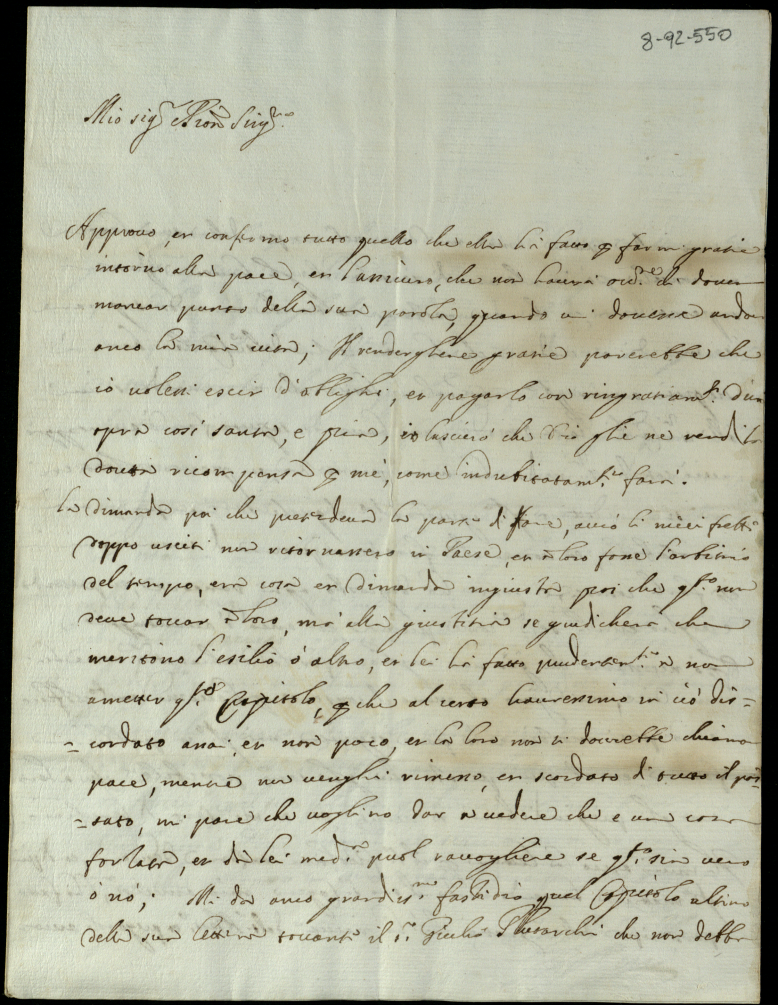 8-92-550
Mio sig.r e Pron Sing.mo
Approvo, et confermo tutto quello che ella hà fatto p farmi gratia
intorno alla pace, et l'assicuro, che non haverà occ.ne di dover
mancar punto della sua parola, quando vi dovesse andar
anco la mia vita; Il renderghene gratie parerebbe che
io volessi escir d'oblighi, et pagarlo con ringratiam.ti d'un
opra così santa, e pia, io lascierò che Dio glie ne rendi la
dovuta ricompensa p mè, come indubitatam.te farà.
La dimanda poi che pretendeva la parte di fare, acciò li miei fratti
doppo usciti non ritornassero in Paese, et à loro fosse l'arbitrio
del tempo, era cosa et dimanda ingiusta poi che q.sto non
deve toccar à loro, mà alla giustitia se giudicherà che
meritino l'esilio ò altro, et lei hà fatto prudentem.te à non
ametter q.sto Capitolo, p che al certo haveressimo in ciò dis=
=cordato assai, et non poco, et la loro non si dovrebbe chiamar
pace, mentre non venghi rimesso, et scordato di tutto il pas=
=sato, mi pare che voglino dar à vedere che è una cosa
forzata, et da lei med.mo puol racogliere se q.sto sia vero
ò nò; Mi dà anco grandis.mo fastidio quel Capitolo ultimo
della sua lettera toccante il s.r Giulio che non debba